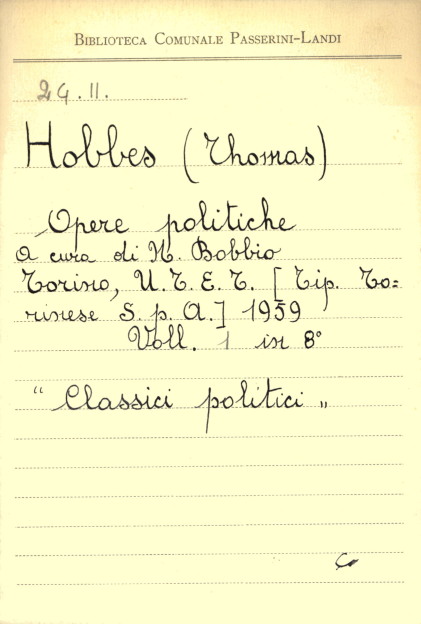 BIBLIOTECA COMUNALE PASSERINI-LANDI
2G.11.
Hobbes (Thomas)
Opere politiche
a cura di N. Bobbio
Torino, U.T.E.T. [Tip. To=
rinese S. p. A.] 1959
Voll. 1 in 8°
"Classici politici"